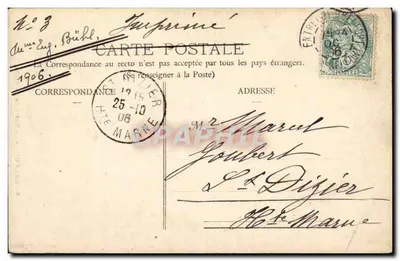 N° 3 Imprimé
Mme Eug. Bühl.
1906.
CARTE POSTALE
La Correspondance au recto n'est pas acceptée par tous les pays étrangers.
(Se renseigner à la Poste)
CORRESPONDANCE
ADRESSE
ST DIZIER
12 15
25-10
06
HTE MARNE
Mr Marcel
Goubert
St Dizier
Hte Marne